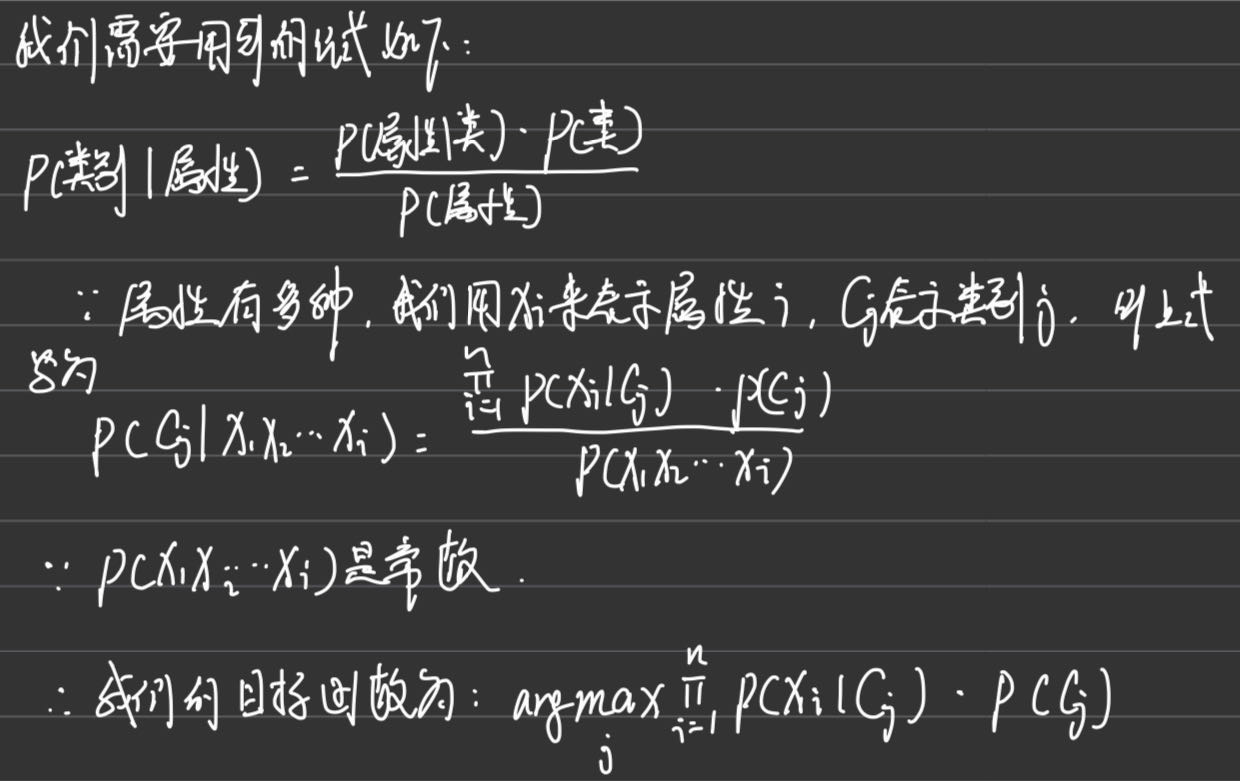 我们需要用到的公式如下:
P(类别|属性) = P(属性|类)·P(类) / P(属性)
∵ 属性有多种, 我们用Xi来表示属性i, Cj表示类别j. 则上式
写为
P(Cj|X₁X₂…Xi) = ∏ᵢ₌₁ⁿ P(Xi|Cj)·P(Cj) / P(X₁X₂…Xi)
∵ P(X₁X₂…Xi)是常数.
∴ 我们的目标函数为: argmaxⱼ ∏ᵢ₌₁ⁿ P(Xi|Cj)·P(Cj)